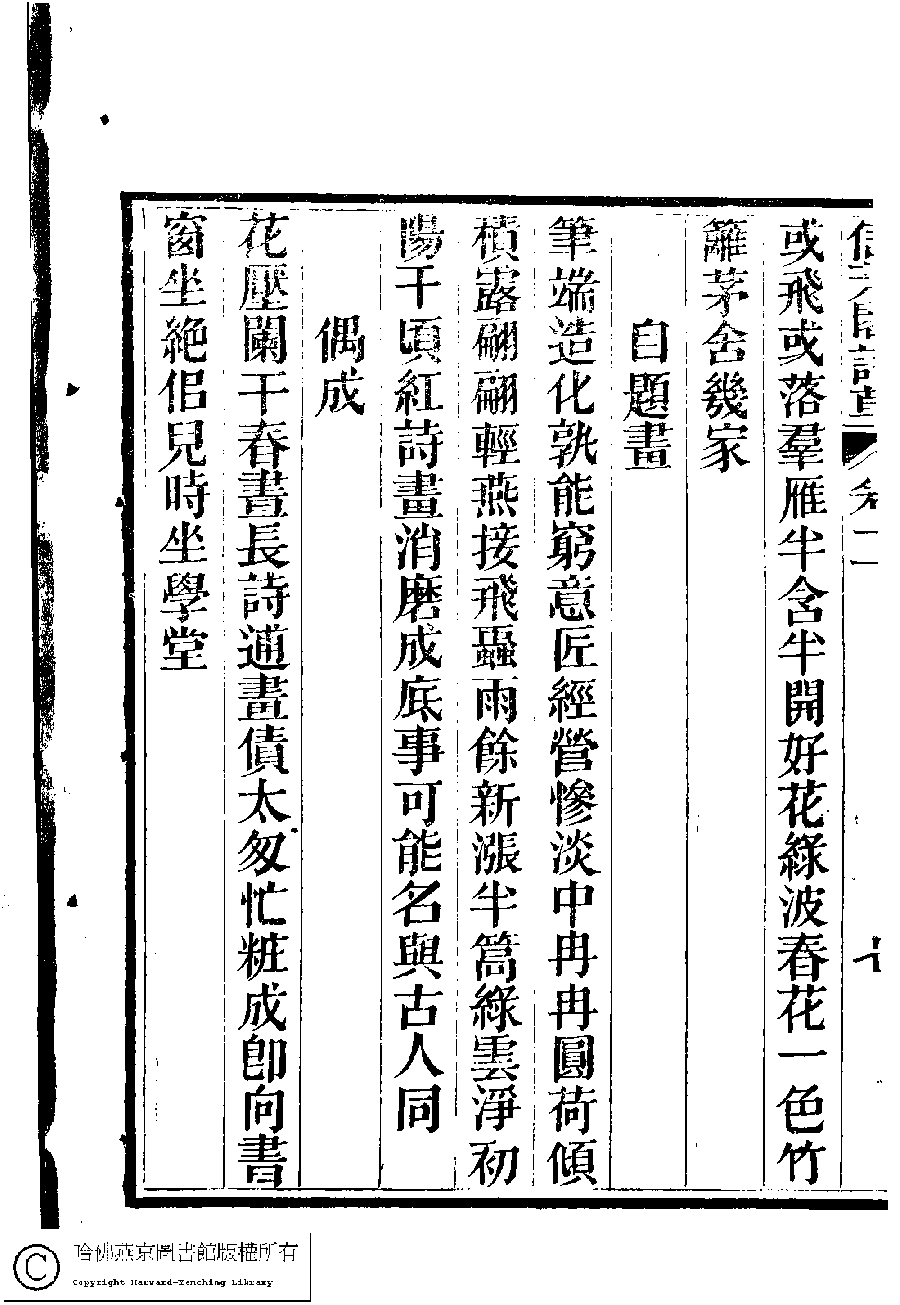 或飛或落羣雁半含半開好花綠波春花一色竹
籬茅舍幾家
自題畫
筆端造化孰能窮意匠經營慘淡中冉冉圓荷傾
積露翩翩輕燕接飛蟲雨餘新漲半篙綠雲淨初
陽千頃紅詩畫消磨成底事可能名與古人同
偶成
花壓闌干春晝長詩逋畫債太匆忙粧成卽向書
窗坐絶佀兒時坐學堂
哈佛燕京圖書館版權所有
Copyright Harvard-Yenching Library